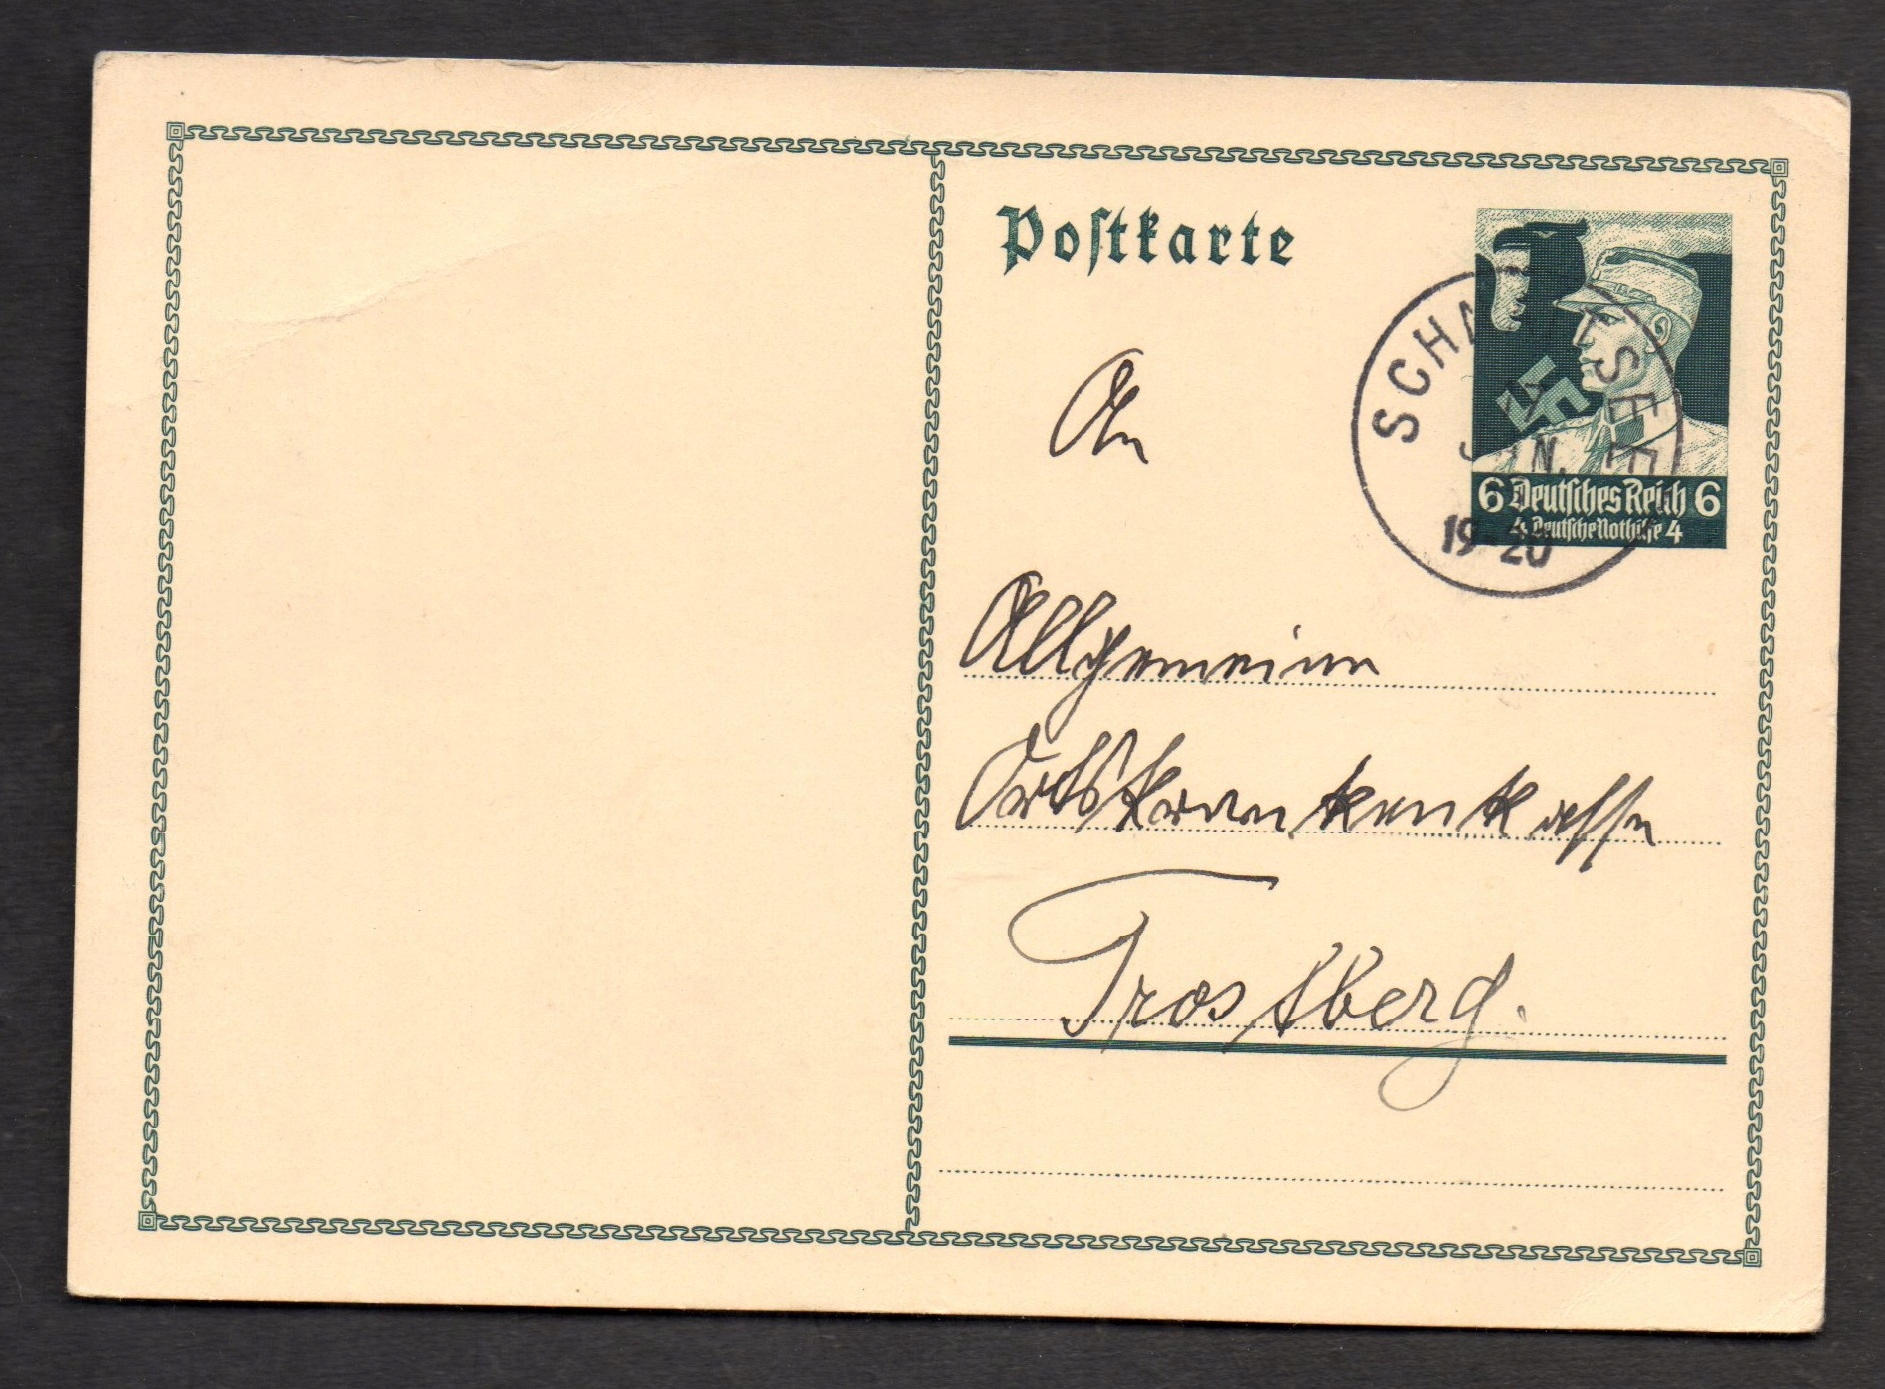 Postkarte
6 Deutsches Reich 6
4 Deutsche Nothilfe 4
JAN.
19-20
An
Allgemeine
Ortskrankenkasse
Trostberg.